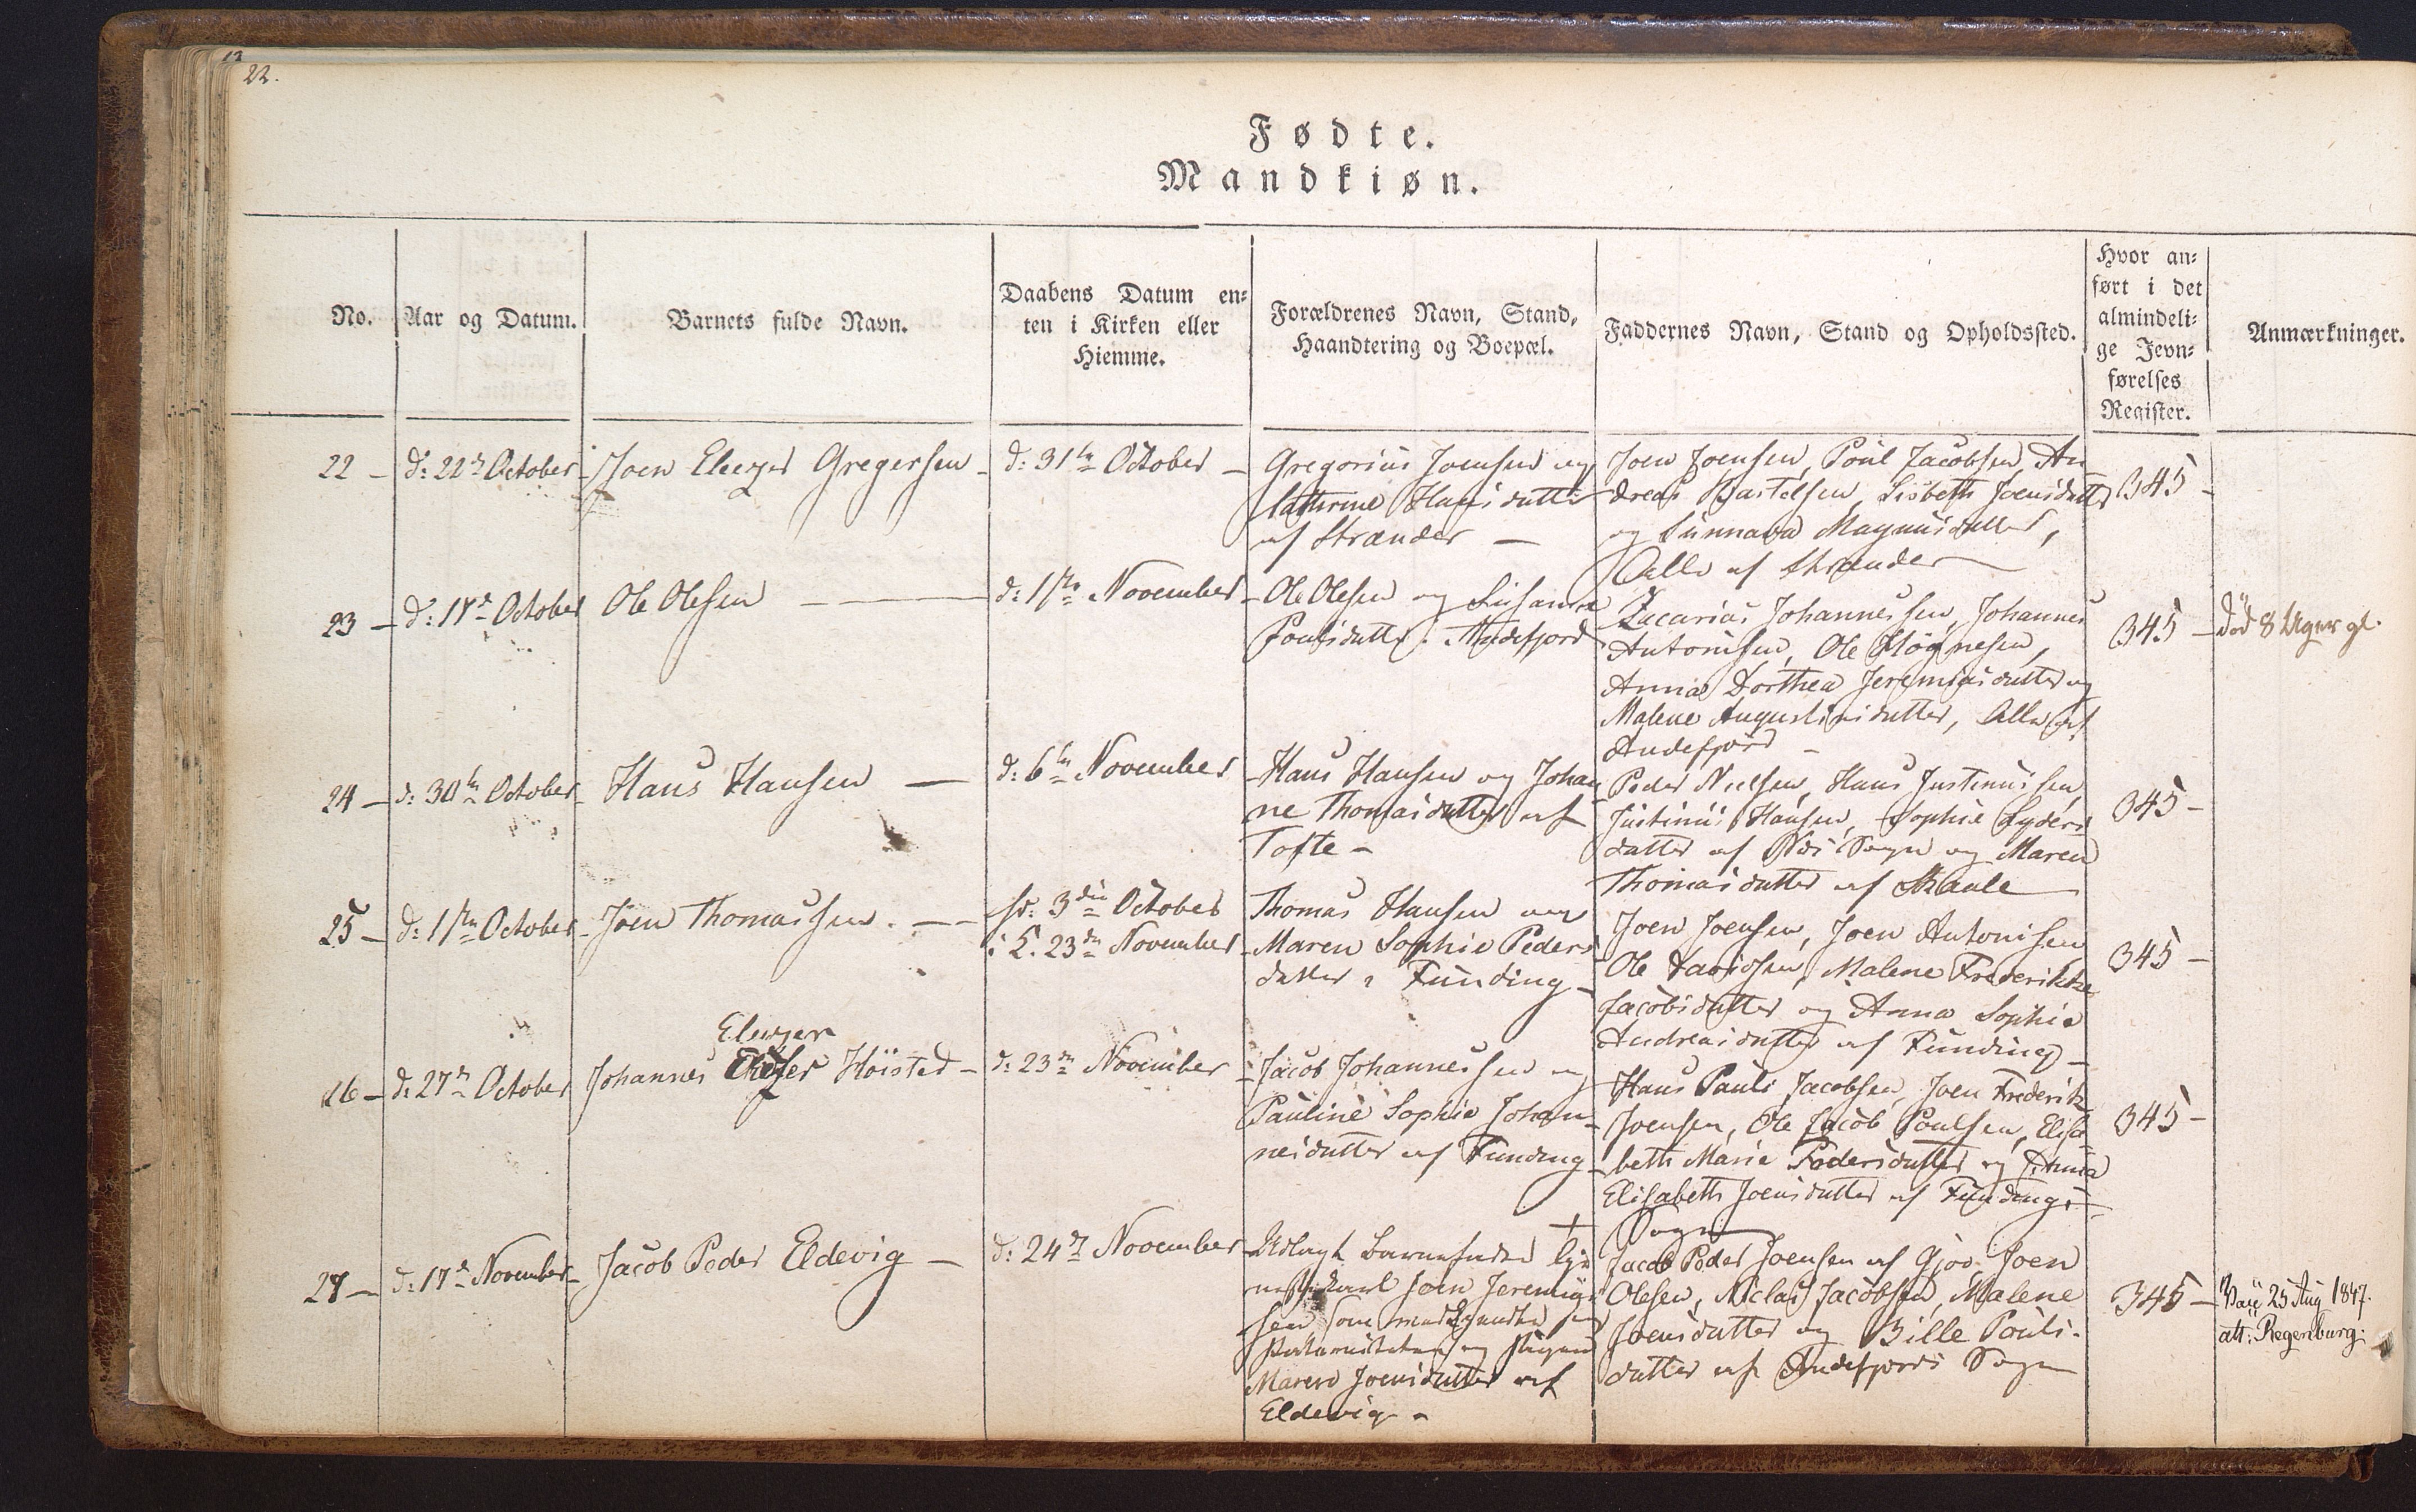 22.
Fødte.
Mandkiøn.
No.
Aar og Datum.
Barnets fulde Navn.
Daabens Datum en-
ten i Kirken eller
Hiemme.
Forældrenes Navn, Stand,
Haandtering og Boepæl.
Faddernes Navn, Stand og Opholdssted.
Hvor an-
ført i det
almindeli-
ge Jevn-
førelses
Register.
Anmærkninger.
22 -
d: 22d October
Joen Eliezer Gregersen -
d: 31te October -
Gregorius Joensen og
Cathrine Hansdatter
af Strænder -
Joen Joensen, Poul Jacobsen, An
dreas Bartelsen, Lisbeth Joensdatter
og Sunnava Magnusdatter,
Alle af Strænder
345 -
23 -
d: 17d October
Ole Olesen -
d: 1ste November -
Ole Olesen og Susanna
Poulsdatter i Andefjord
Zacarias Johannessen, Johannes
Antonisen, Ole Høgnesen,
Anna Dorthea Jeremiasdatter og
Malene Augustinusdatter, Alle af
Andefjord -
345 -
død 8 Uger gl.
24 -
d: 30te October -
Hans Hansen -
d: 6te November
Hans Hansen og Johan
ne Thomasdatter af
Tofte -
Peder Nielsen, Hans Justinussen
Justinus Hansen, Sophie Lyders
datter af Næs Sogn og Maren
Thomasdatter af Skaale
345 -
25 -
d: 1ste October -
Joen Thomassen. -
3die October
23de November
Thomas Hansen og
Maren Sophie Peders
datter i Funding -
Joen Joensen, Joen Antonisen
Ole Davidsen, Malene Frederikke
Jacobsdatter og Anna Sophie
Andreasdatter af Funding -
345 -
Eliezer
26 -
d: 27d October
Johannes Høisted -
d: 23de November
Jacob Johannessen og
Pauline Sophie Johan-
nesdatter af Funding -
Hans Pauli Jacobsen, Joen Frederik
Joensen, Ole Jacob Poulsen, Elisa
beth Marie Pedersdatter og Anna
Elisabeth Joensdatter af Fundings
Sogn
345 -
27 -
d: 17d November -
Jacob Peder Eldevig -
d: 24d November
Udlagt Barnefader
Joen Jeremias
sen som
og Pigen
Maren Joensdatter af
Eldevig -
Jacob Peder Joensen af Gjov, Joen
Olesen, Niclas Jacobsen, Malene
Joensdatter og Bille Pouls-
datter af Andefjords Sogn
345 -
Vacc 25 Aug 1847.
att: Regenburg.